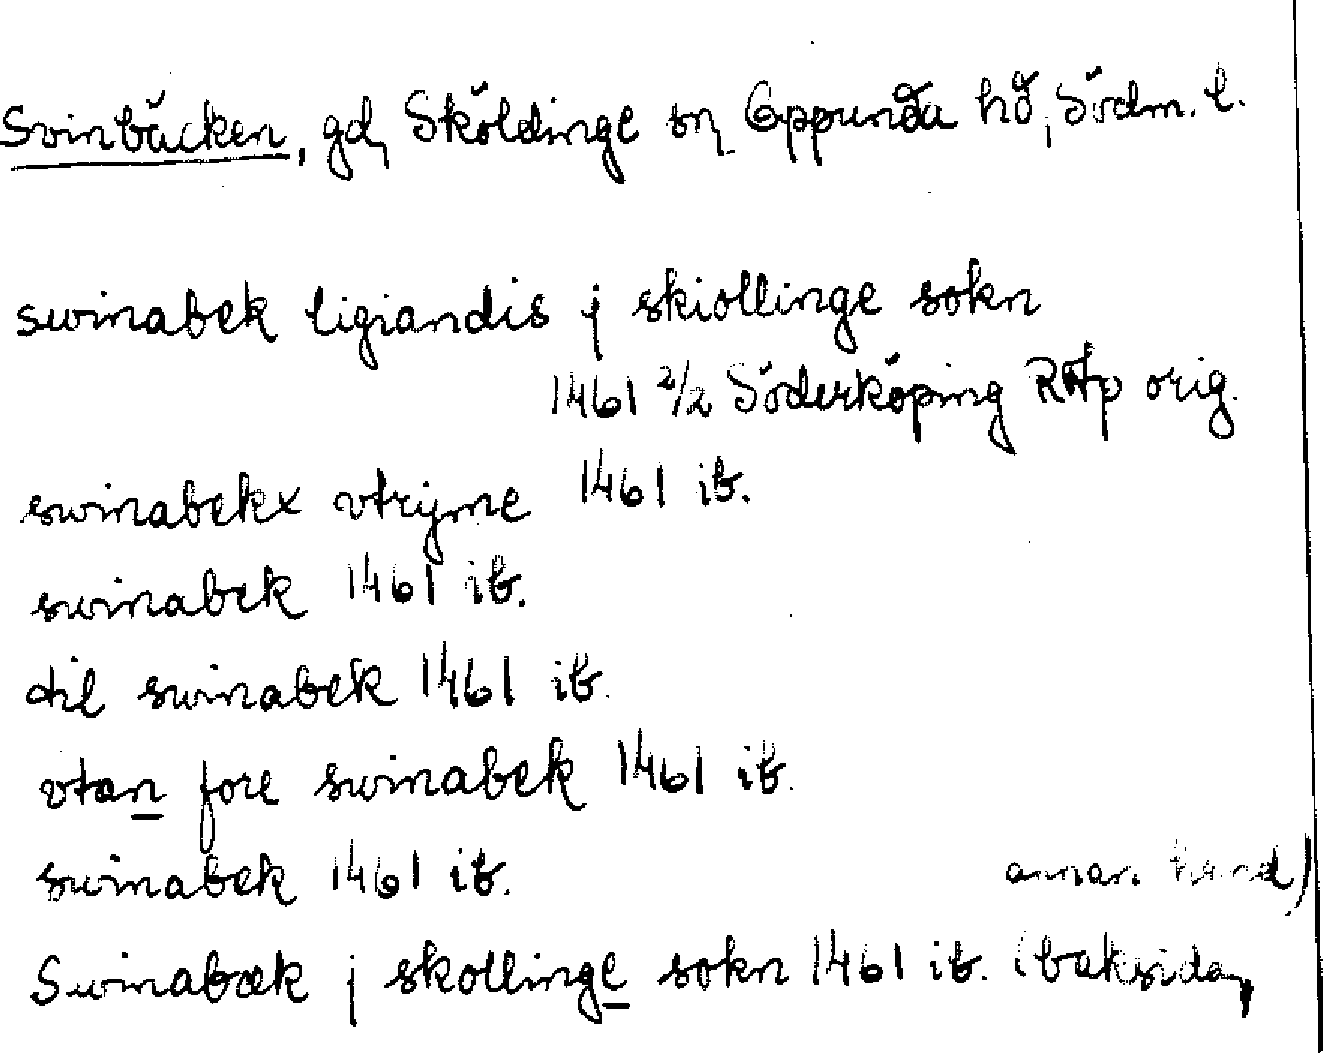 Svinbäcken, gd, Sköldinge sn, Oppunda hd, Södm. l.
swinabek ligiandis j skiollinge sokn
1461 2/2 Söderköping RAp orig.
swinabekx vtrijme 1461 ib.
swinabek 1461 ib.
dil swinabek 1461 ib.
vtan fore swinabek 1461 ib.
swinabek 1461 ib.
Swinabæk j skollinge sokn 1461 ib. (baksida,
annan hand)